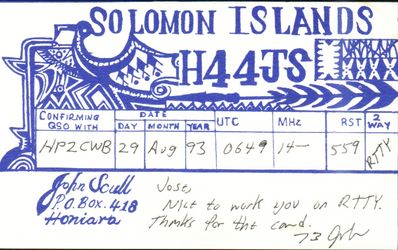 SOLOMON ISLANDS
H44JS
CONFIRMING QSO WITH DATE DAY MONTH YEAR UTC MHz RST 2 WAY
HP2CWB 29 Aug 93 0649 14— 559 RTTY
John Scull
P.O. Box. 418
Honiara
Jose,
Nice to work you on RTTY.
Thnks for the card.
73 John